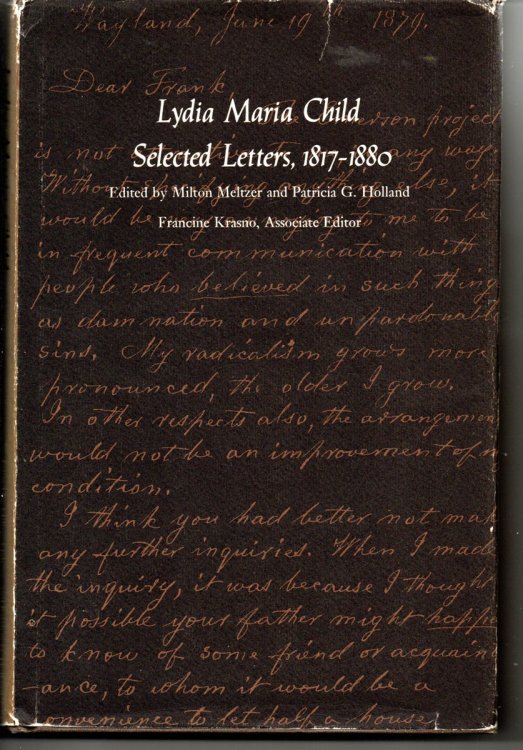 Wayland, June 19th 1879.
Dear Frank,
Lydia Maria Child
erson project
Selected Letters, 1817-1880
is not any way.
Edited by Milton Meltzer and Patricia G. Holland
Without else, it
Francine Krasno, Associate Editor
would be to me to be
in frequent communication with
people who believed in such thing
as damnation and unpardonable
sins. My radicalism grows more
pronounced, the older I grow.
In other respects also, the arrangemen
would not be an improvement of m
condition.
I think you had better not mak
any further inquiries. When I made
the inquiry, it was because I thought
it possible your father might happe
to know of some friend or acquain
-ance, to whom it would be a
convenience to let half a house,